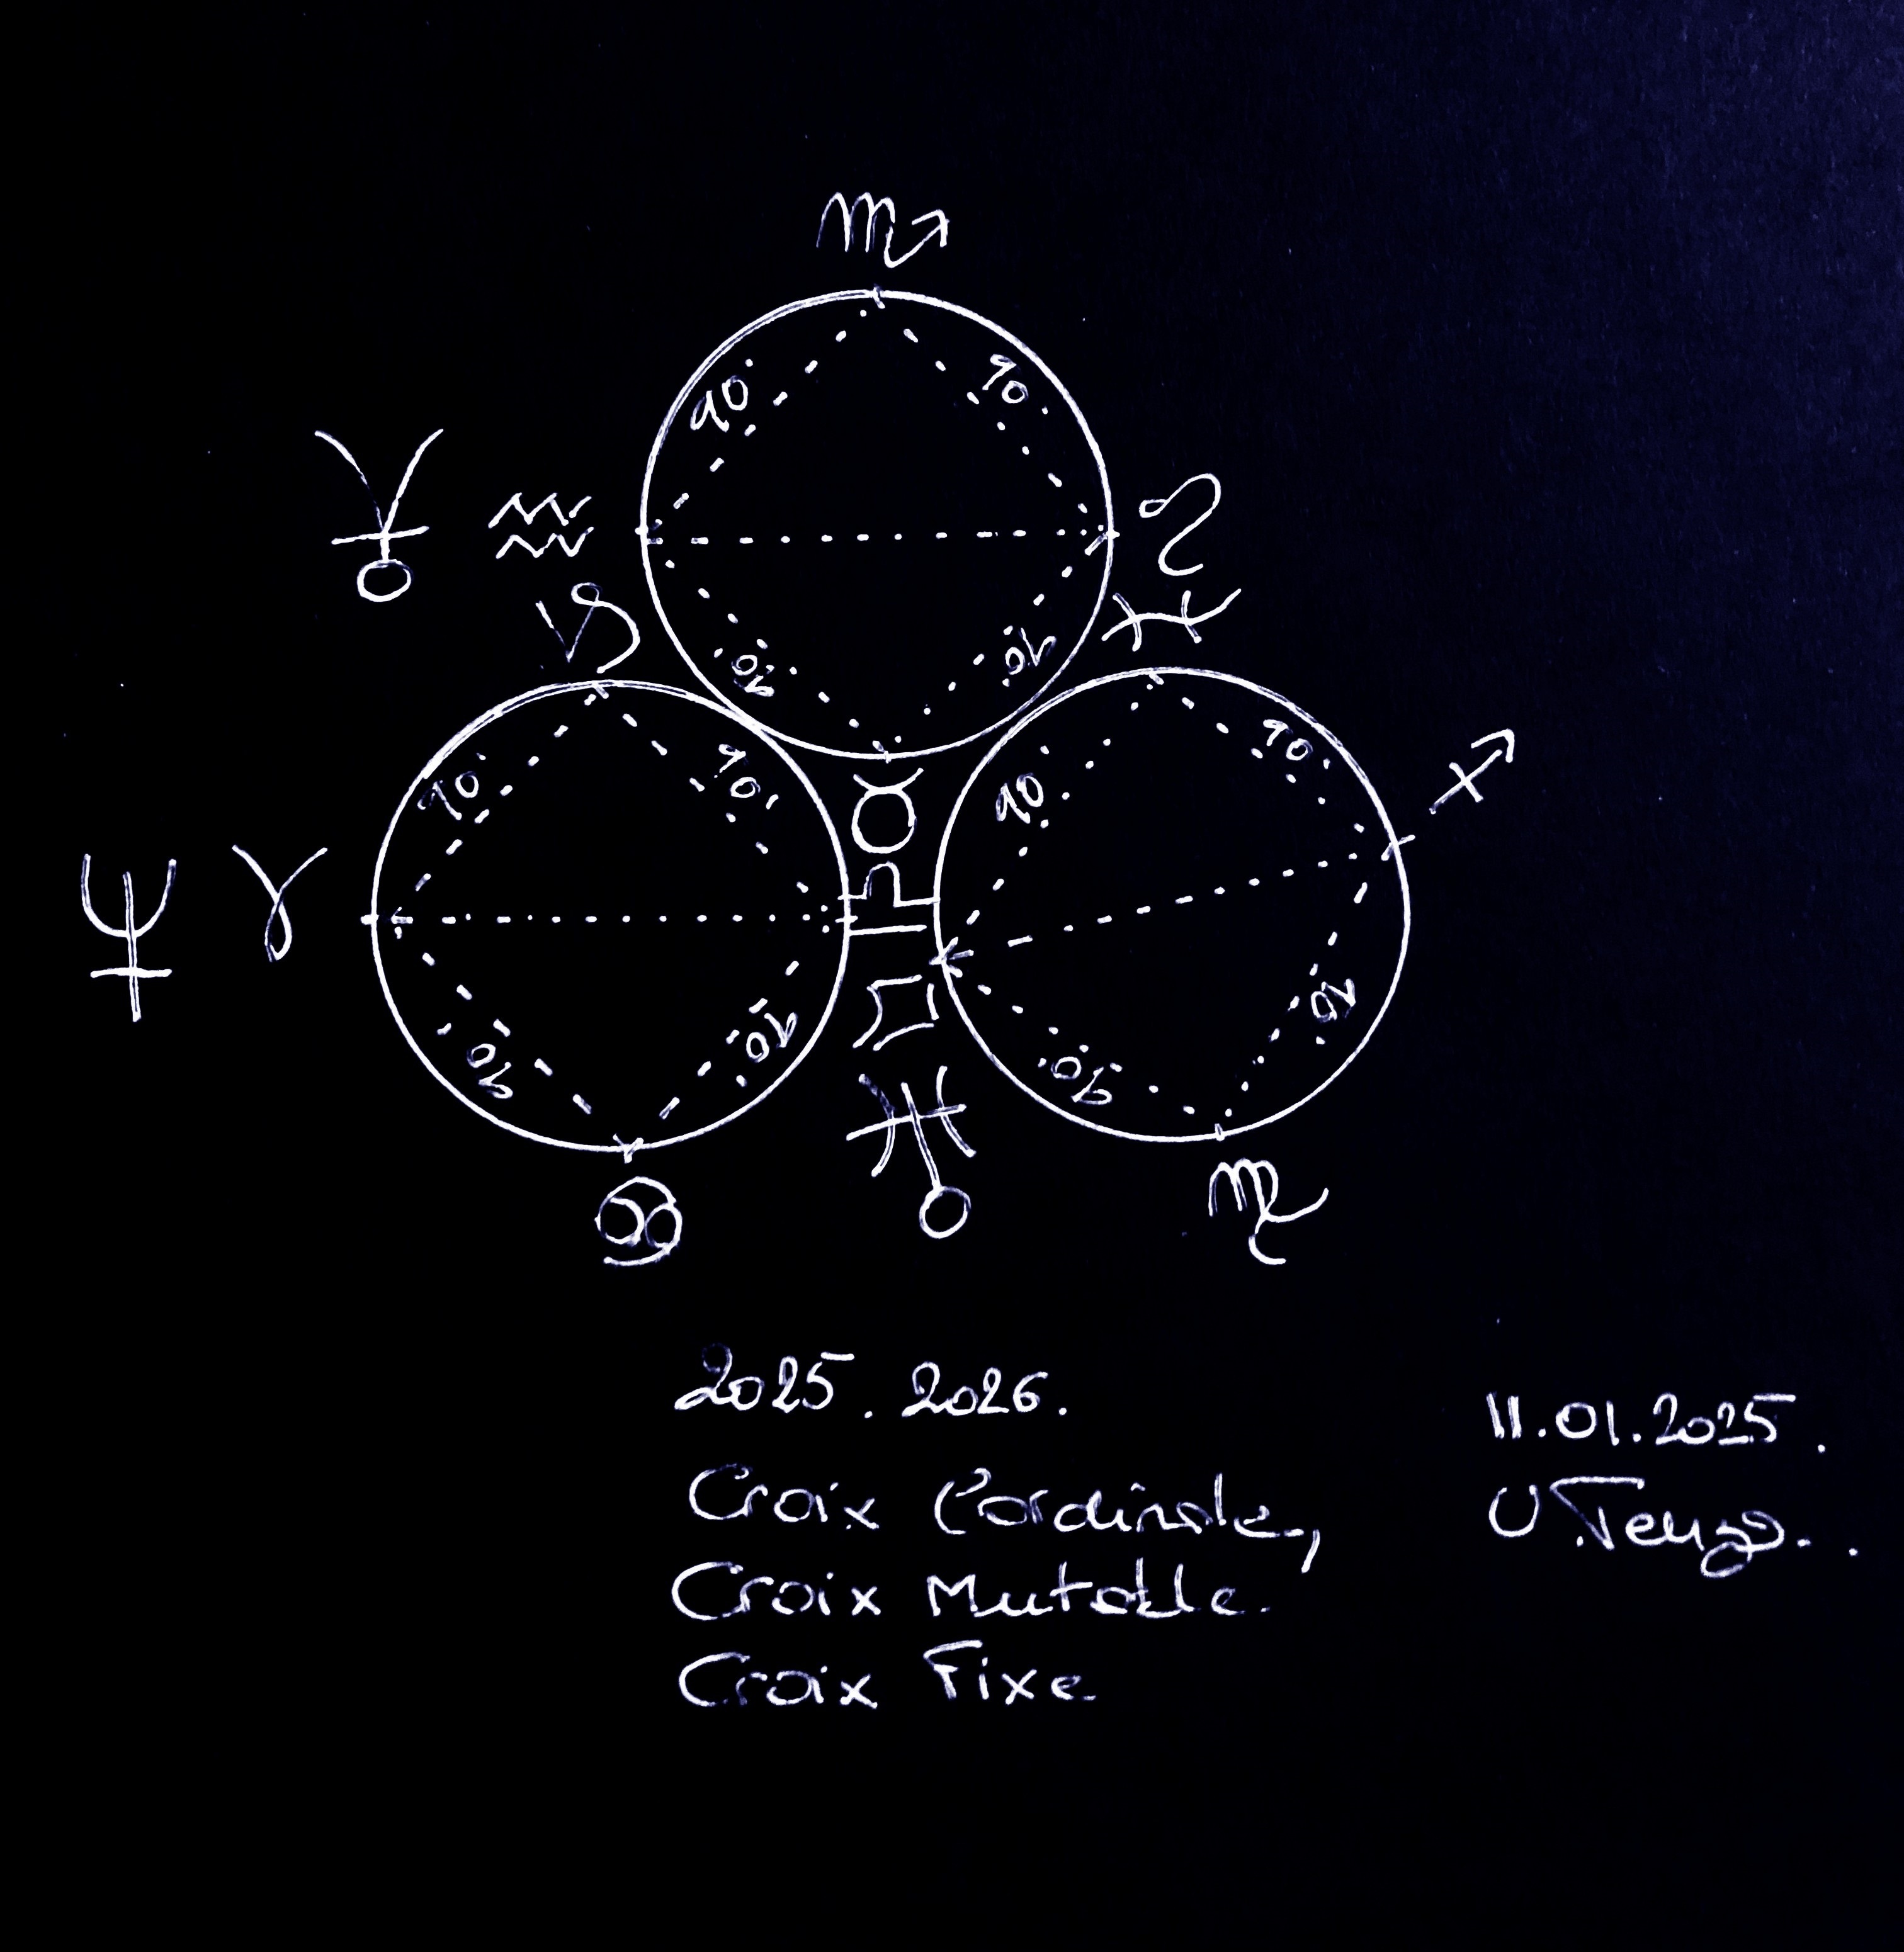 ♏
90°
90°
♒
♌
♑
♓
90°
90°
90°
90°
90°
90°
♐
♉
♈
♎
♆
♊
90°
90°
90°
90°
♅
♋
♍
2025. 2026.
Croix Cardinale,
Croix Mutable.
Croix Fixe
11.01.2025.